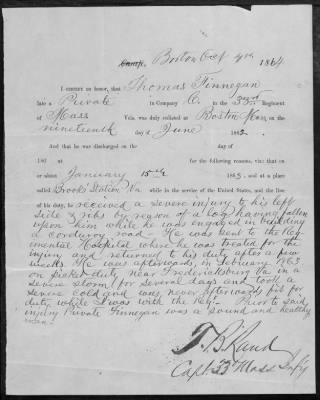 Camp, Boston Oct 4th 1864
I certify on honor, that Thomas Finnegan
late a Private in Company C. in the 33rd Regiment
of Mass Vols. was duly enlisted at Boston Mass on
nineteenth day of June 1862.
And that he was discharged on the day of
186 at for the following reasons, viz: that on
or about January 15th 1863, and at a place
called Brooks Station Va while in the service of the United States, and the line
of his duty, he received a severe injury to his left
side & ribs by reason of a log having fallen
upon them while he was engaged in building
a corduroy road. He was sent to the Reg-
imental Hospital where he was treated for the
injury and returned to his duty after a few
weeks. He was afterwards, in February 1863
on picket duty near Fredericksburg Va in a
severe storm for several days and took a
severe cold and was never afterwards fit for
duty while I was with the Regt. Prior to said
injury Private Finnegan was a sound and healthy
man.
Capt 33d Mass Infy